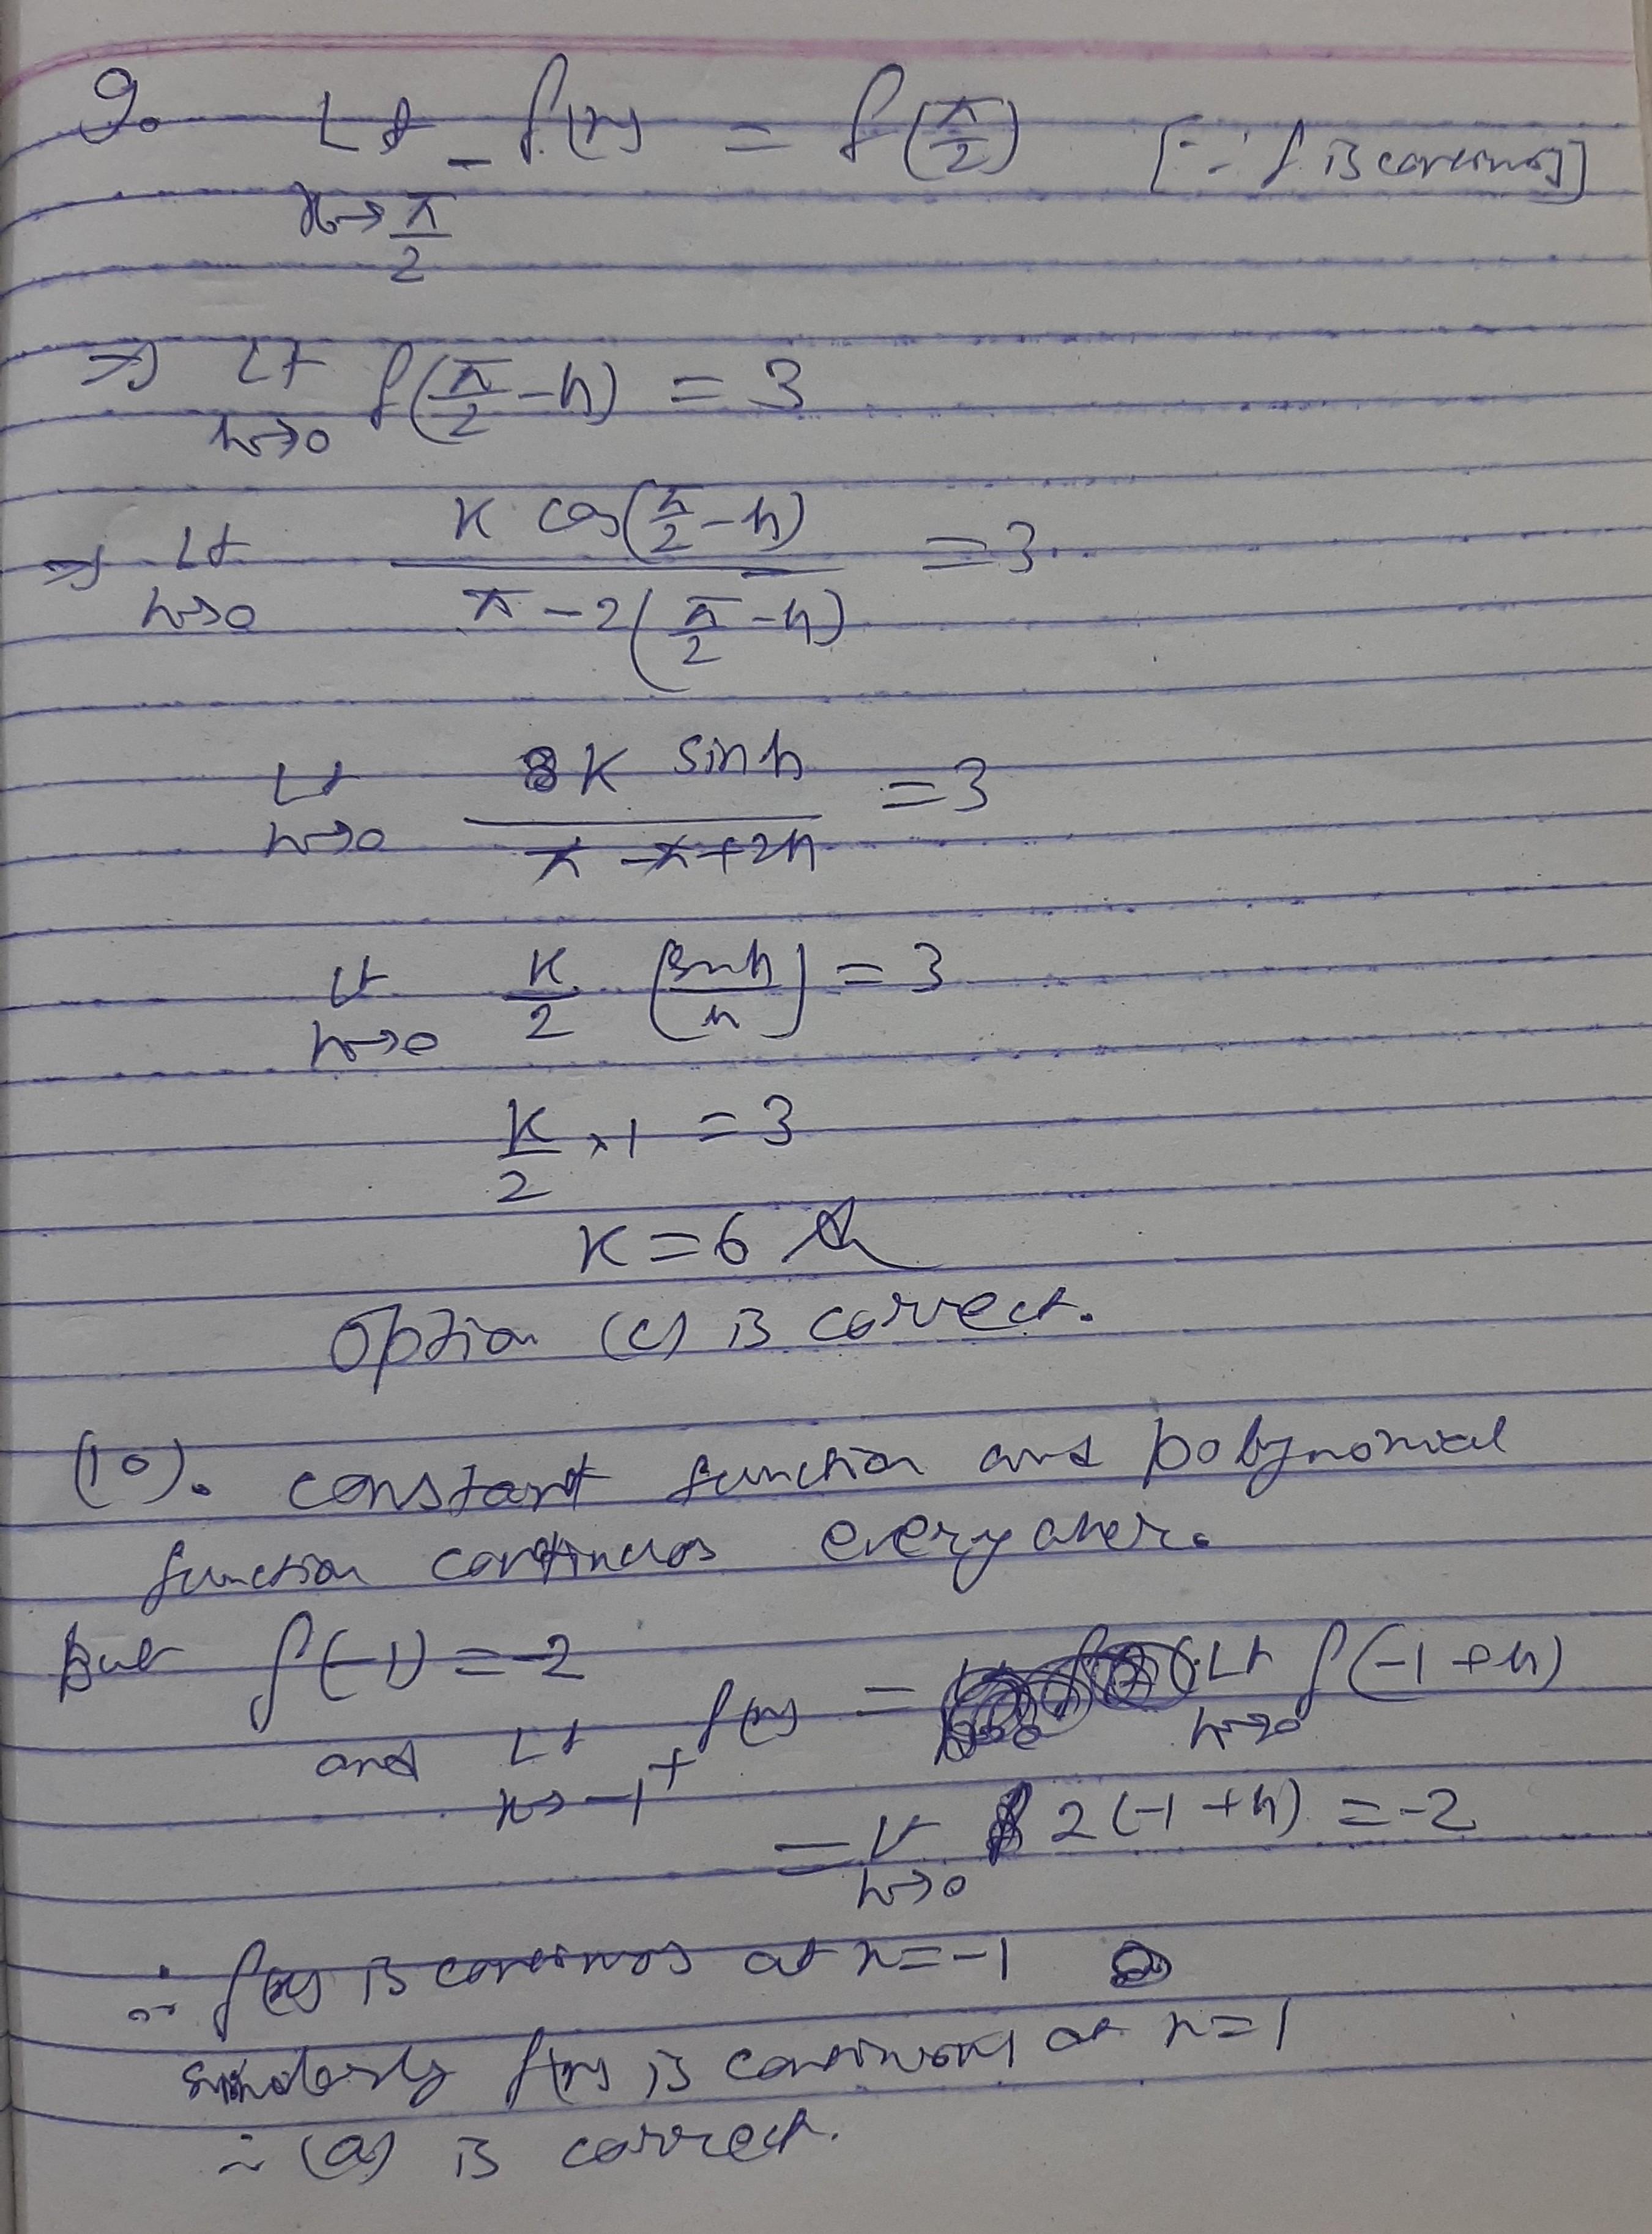 9. Lt f(x) = f(π/2) [∵ f is continuous]
x→π/2⁻
⇒ Lt f(π/2-h) = 3
h→0
⇒ Lt K cos(π/2-h) / π-2(π/2-h) = 3
h→0
Lt K sinh / π-π+2h = 3
h→0
Lt K/2 (sinh/h) = 3
h→0
K/2 ×1 = 3
K=6
option (c) is correct.
(10). constant function and polynomial
function continuos everywher.
But f(-1) = -2
and Lt f(x) = Lt f(-1+h)
x→-1⁺ h→0
= Lt 2(-1+h) = -2
h→0
∴ f(x) is continuos at x=-1
f(x) is continuous at x=1
∴ (a) is correct.